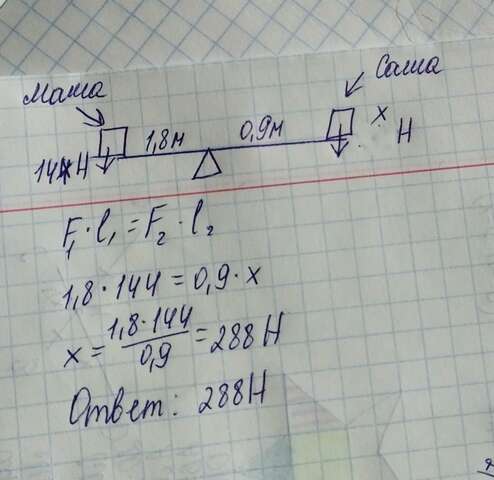 Маша
Саша
1,8м
0,9м
144Н
x Н
F₁ · l₁ = F₂ · l₂
1,8 · 144 = 0,9 · x
x = 1,8 · 144 / 0,9 = 288 Н
Ответ: 288Н